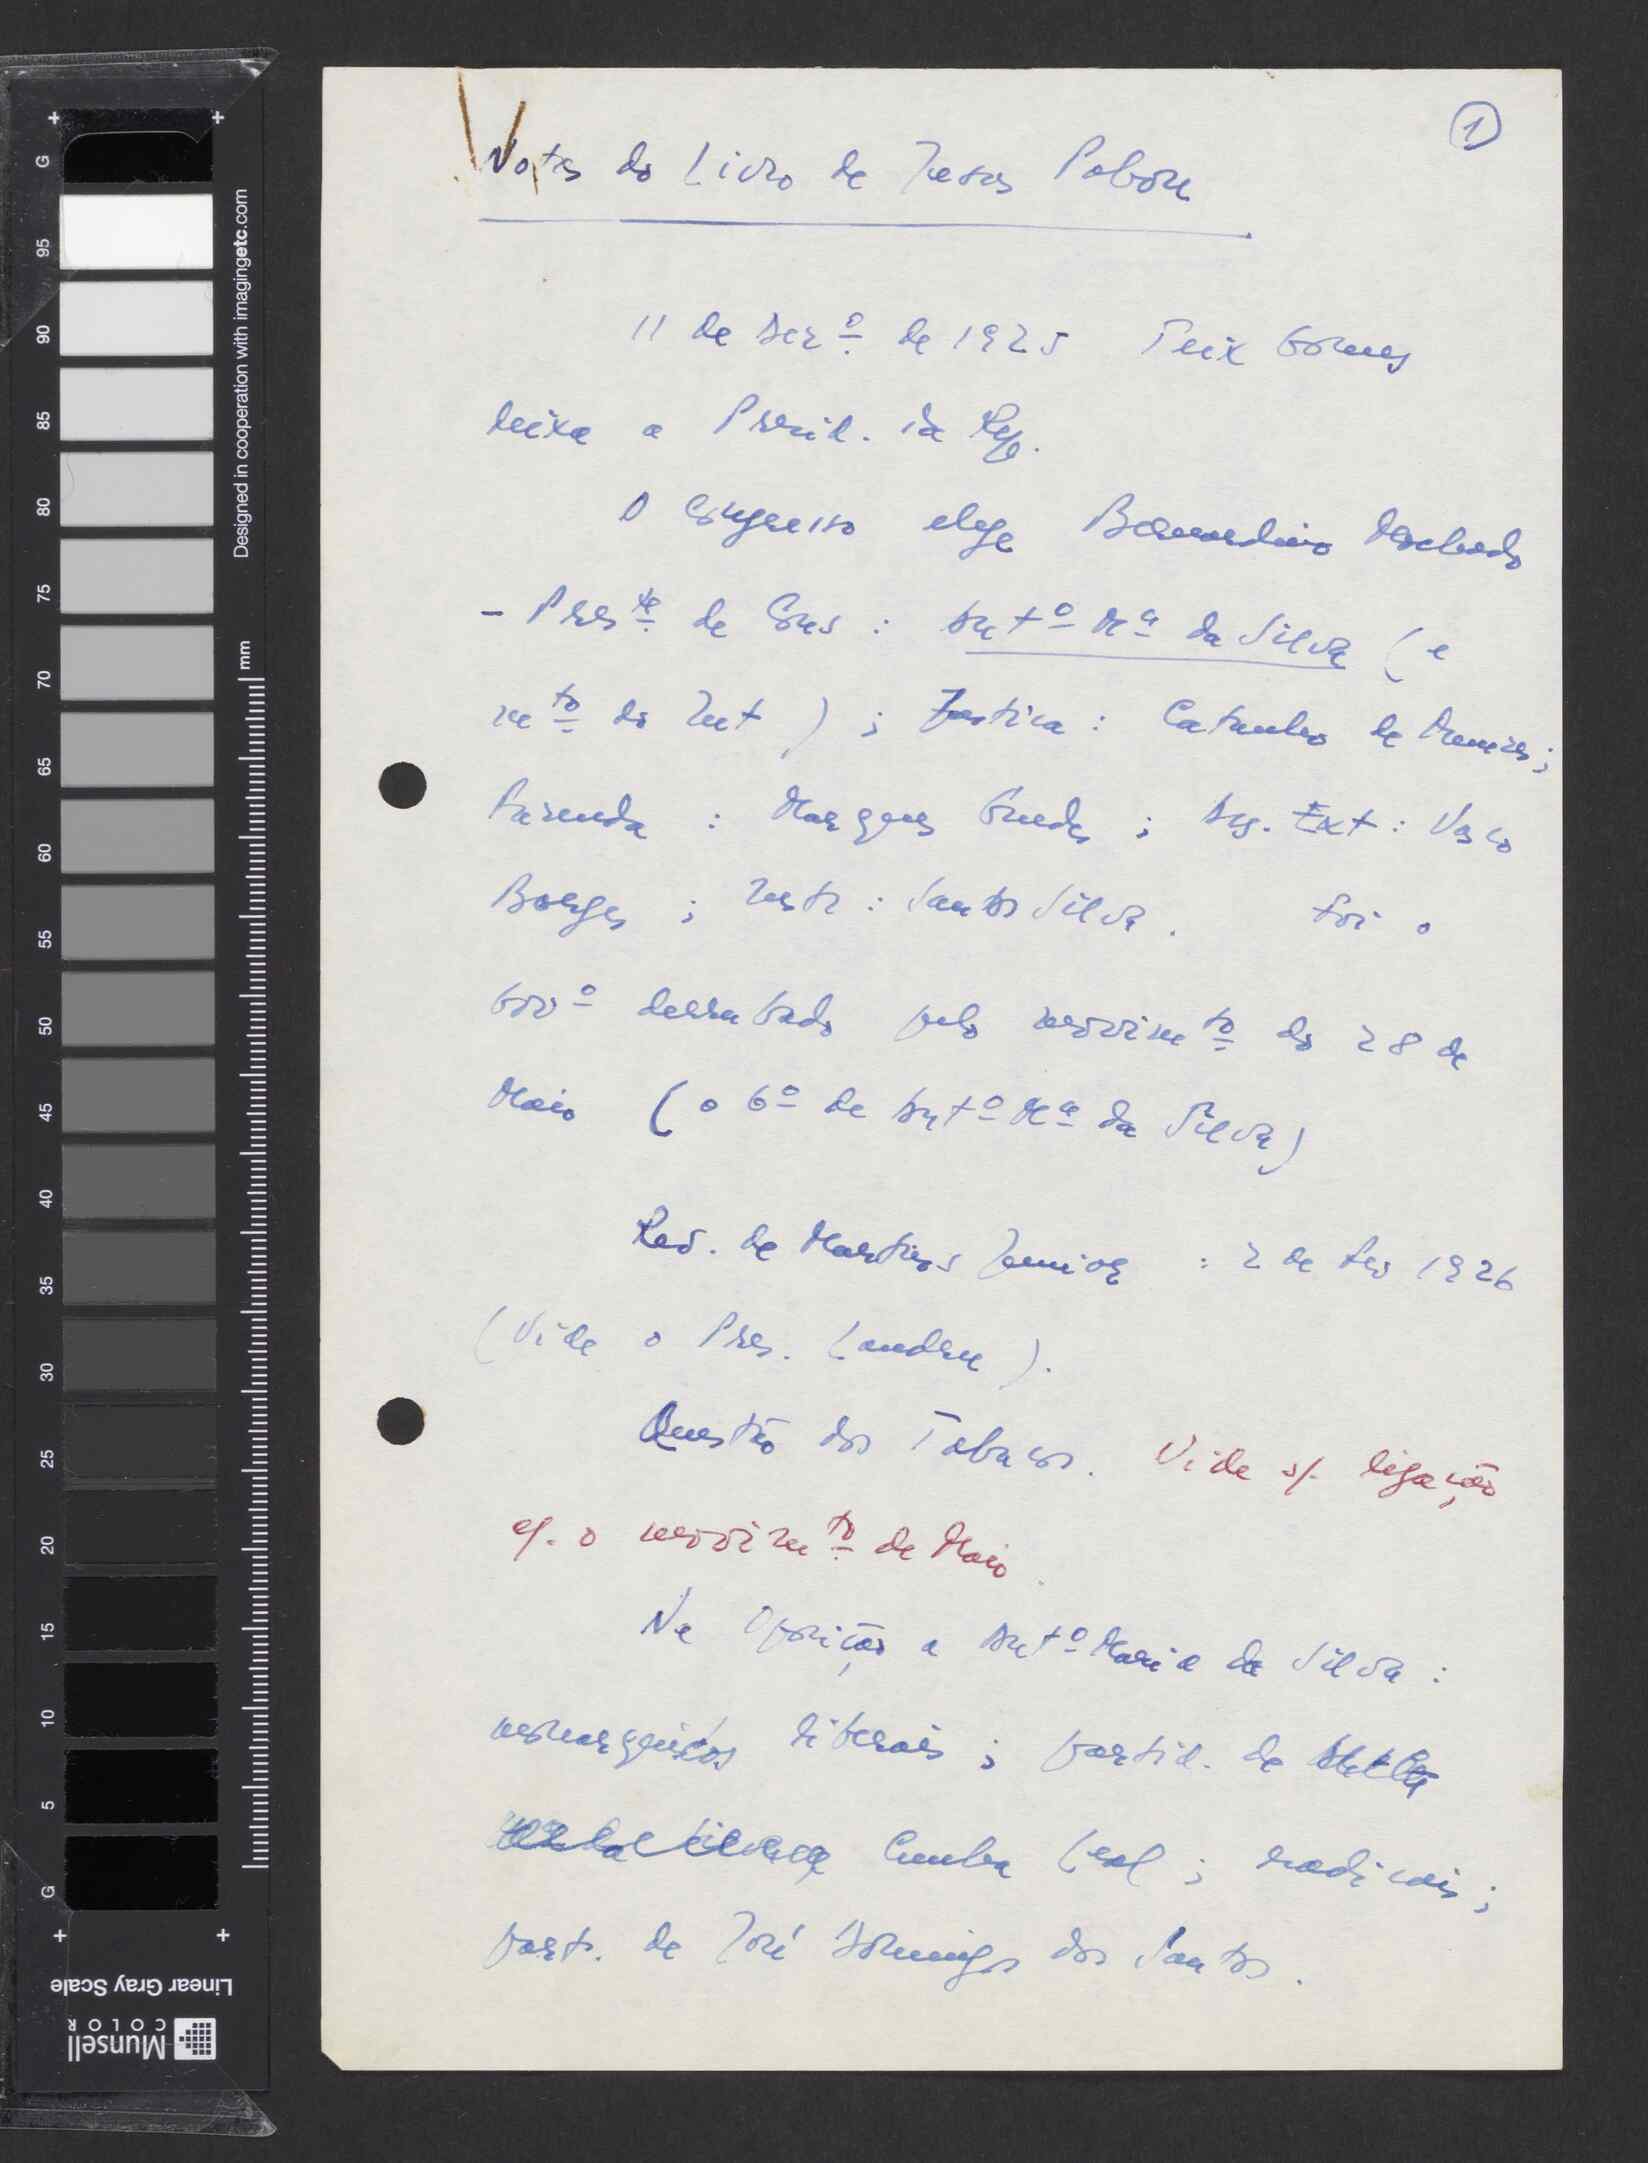 1
Notas do Livro de Jesus Pabon
11 de Dezº de 1925 Teix Gomes
deixa a Presid. da Rep.
O Congresso elege Bernardino Machado
- Preste de Cons : Antº Mª da Silva (e
mto do Int ) ; Justica : Catanho de Menezes ;
Fazenda : Marques Guedes ; Neg. Ext : Vasco
Borges ; Instr : Santos Silva . Foi o
Govº derrubado pelo movimto do 28 de
Maio ( o 6º de Antº Mª da Silva)
Rev. de Martins Junior : 2 de Fev 1926
(Vide o Pres. Landru ).
Questão dos Tabacos. Vide s/. ligação
c/. o movimto de Maio
Na Oposição a Antº Maria da Silva :
monarquicos liberais ; partid. de
Cunha Leal ; radicais ;
part. de José Domingos dos Santos .
G
95
90
85
80
75
70
65
60
55
50
45
40
35
30
25
20
15
10
5
G
Designed in cooperation with imagingetc.com
mm
Linear Gray Scale
Munsell
COLOR